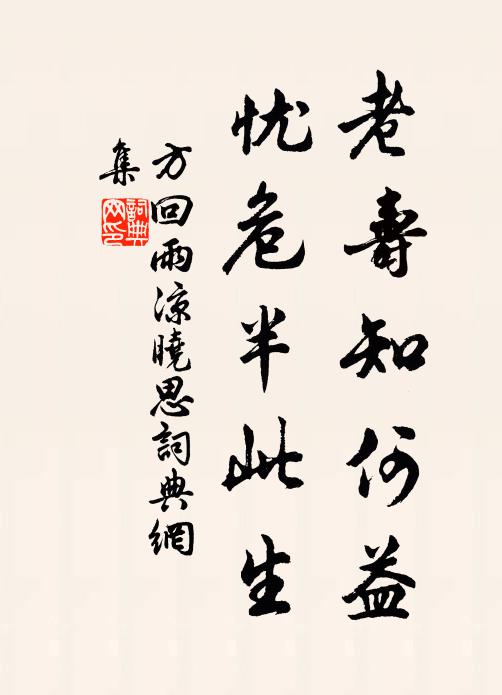 老壽知何益
忧危半此生
方回雨凉曉思詞典網
集
詞典
网印